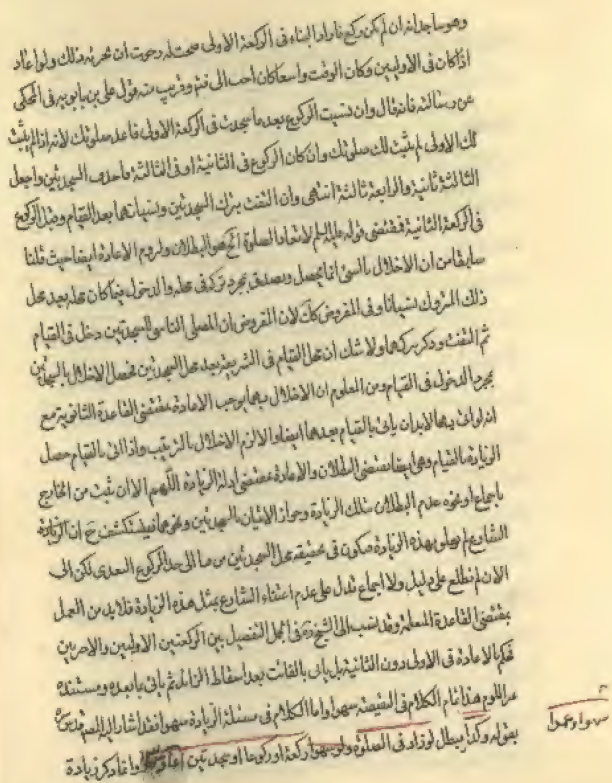 وهو ساجد انه ان لم يكن ركع فاراد البناء فى الركعة الاولى صحت له رجوت ان تجزيه ذلك ولو اعاد
اذا كان فى الاوليين وكان الوقت واسعا كان احب الى فثم وقريب منه قول على بن بابويه فى المحكى
عن رسالته فانه قال وان نسيت الركوع بعد ما سجدت فى الركعة الاولى فاعد صلوتك لانه اذا لم يثبت
لك الاولى لم يثبت لك صلوتك وان كان الركوع فى الثانية او فى الثالثة فاحذف السجدتين واجعل
الثالثة ثانية والرابعة ثالثة انتهى وان التفت بترك السجدتين ونسيانهما بعد القيام وقبل الركوع
فى الركعة الثانية فمقتضى قوله عليه السلم لاتعاد الصلوة الخ هو البطلان ولزوم الاعادة ايضا حيث قلنا
سابقا من ان الاخلال بالشئ انما يحصل ويصدق بجرد تركه فى محله والدخول فيما كان محله بعد محل
ذلك المتروك نسيانا وفى المفروض كك لان المفروض ان المصلى الناسى للسجدتين دخل فى القيام
ثم التفت وذكر تركهما ولا شك ان محل القيام فى الشريعة بعد محل السجدتين فحصل الاخلال بالسجدتين
بمجرد الدخول فى القيام ومن المعلوم ان الاخلال بهما يوجب الاعادة بمقتضى القاعدة الثانوية مع
انه لو اتى بهما لابد ان ياتى بالقيام بعدهما ايضا والا لزم الاخلال بالترتيب واذا اتى بالقيام حصل
الزيادة بالقيام وهى ايضا تقتضى البطلان والاعادة بمقتضى ادلة الزيادة اللهم الا ان يثبت من الخارج
باجماع او نحوه عدم البطلان بتلك الزيادة وجواز الاتيان بالسجدتين ونحوهما فيستكشف ح ان الزيادة
الشارع لم بهذه الزيادة فيكون فى الحقيقة محل السجدتين من الى حد الركوع البعدى لكن الى
الان لم نطلع على دليل ولا اجماع تدل على عدم اعتناء الشارع بمثل هذه الزيادة فلابد من العمل
بمقتضى القاعدة المعلمة وقد نسب الى الشيخ ره فى الجمل التفصيل بين الركعتين الاوليين والاخريين
فحكم بالاعادة فى الاولى دون الثانية بل ياتى بالفائت بعد اسقاط الزائد ثم ياتى بما بعده ومستنده
غير معلوم هذا تمام الكلام فى النقيصة سهوا واما الكلام فى مسئلة الزيادة سهوا فقد اشار اليه المصنف قدس سره
بقوله وكذا يبطل لو زاد فى الصلوة ولو سهوا ركعة او ركوعا او سجدتين اعاد وانما ذكر زيادة
سهوا وعمدا